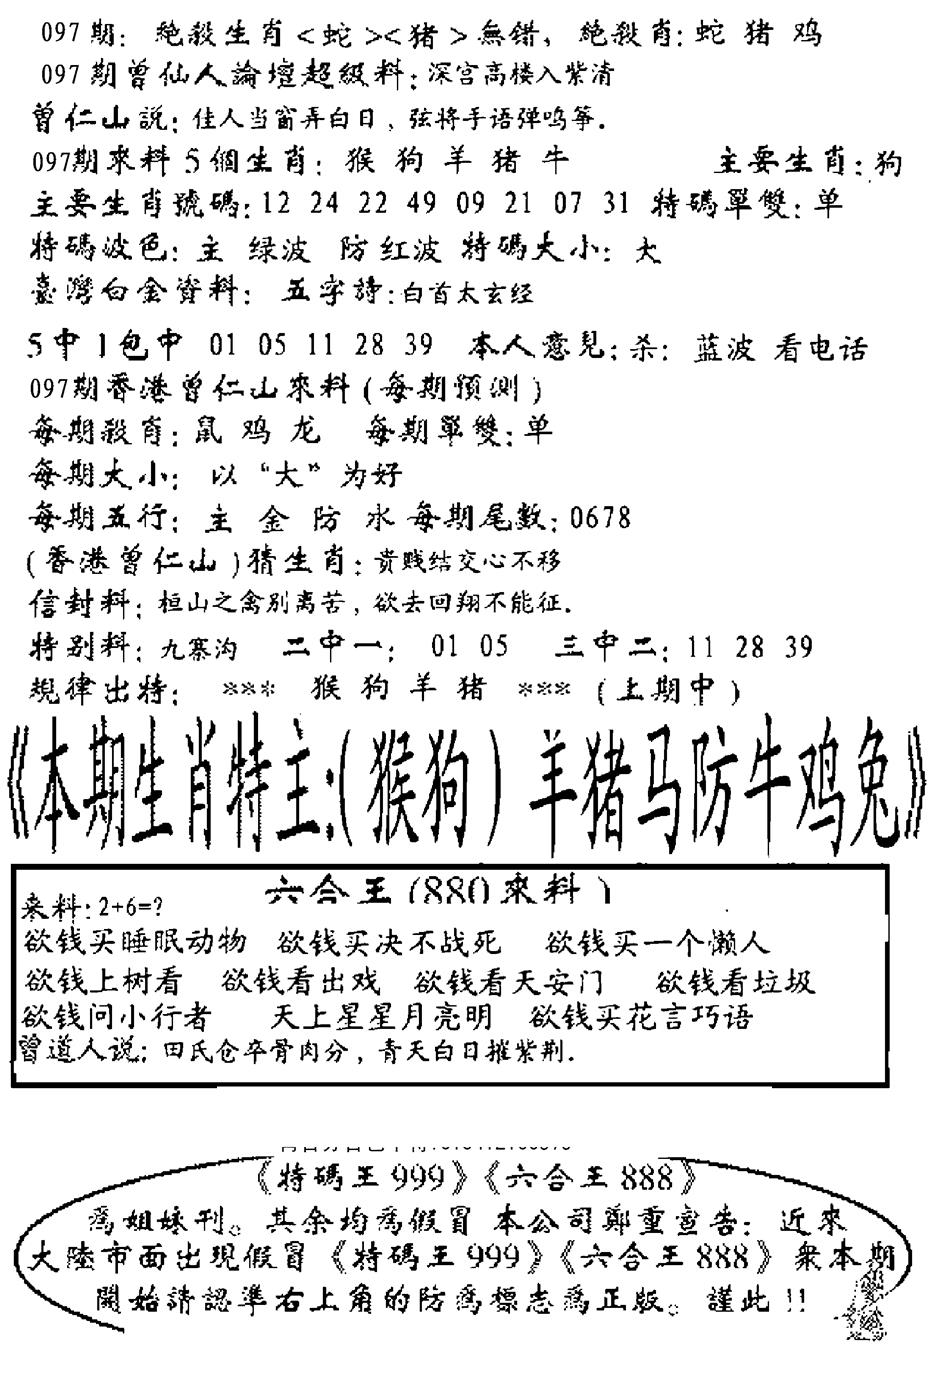 097期: 絶殺生肖<蛇><猪>無错, 絶殺肖:蛇 猪 鸡
097期曾仙人論壇超級料:深宫高楼入紫清
曾仁山説:佳人当窗弄白日,弦将手语弹鸣筝.
097期來料5個生肖:猴 狗 羊 猪 牛 主要生肖:狗
主要生肖號碼:12 24 22 49 09 21 07 31 特碼單雙:单
特碼波色:主 绿波 防红波 特碼大小:大
臺灣白金資料: 五字詩:白首太玄经
5中1包中 01 05 11 28 39 本人意見:杀: 蓝波 看电话
097期香港曾仁山來料(每期預測)
每期殺肖:鼠 鸡 龙 每期單雙:单
每期大小: 以“大”为好
每期五行: 主 金 防 水 每期尾數:0678
(香港曾仁山)猜生肖:贵贱结交心不移
信封料:桓山之禽别离苦,欲去回翔不能征.
特别料:九寨沟 二中一: 01 05 三中二:11 28 39
規律出特: *** 猴 狗 羊 猪 *** (上期中)
《本期生肖特主:(猴狗)羊猪马防牛鸡兔》
六合王(880來料)
来料:2+6=?
欲钱买睡眠动物 欲钱买决不战死 欲钱买一个懒人
欲钱上树看 欲钱看出戏 欲钱看天安门 欲钱看垃圾
欲钱问小行者 天上星星月亮明 欲钱买花言巧语
曾道人说:田氏仓卒骨肉分,青天白日摧紫荆.
《特碼王999》《六合王888》
爲姐妹刊。其余均爲假冒 本公司鄭重宣告: 近來
大陸市面出現假冒《特碼王999》《六合王888》衆本期
開始請認準右上角的防爲標志爲正版。謹此!!